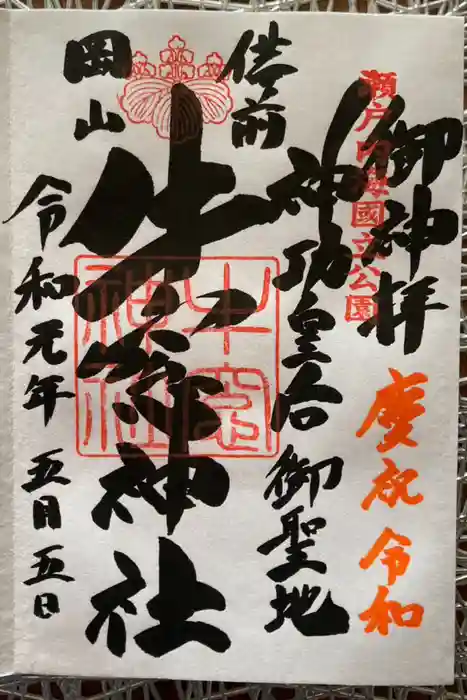 御神拝
瀬戸内海國立公園
慶祝令和
備前
神功皇后御聖地
岡山
牛窓神社
牛窓神社
令和元年五月五日